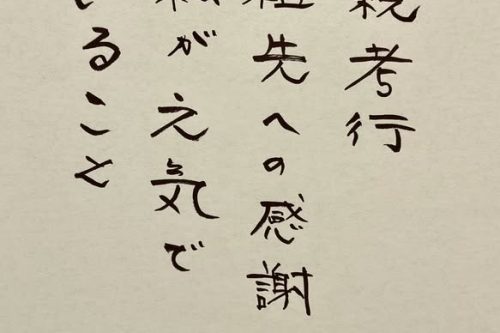 親考行
祖先への感謝
私が元気で
いること